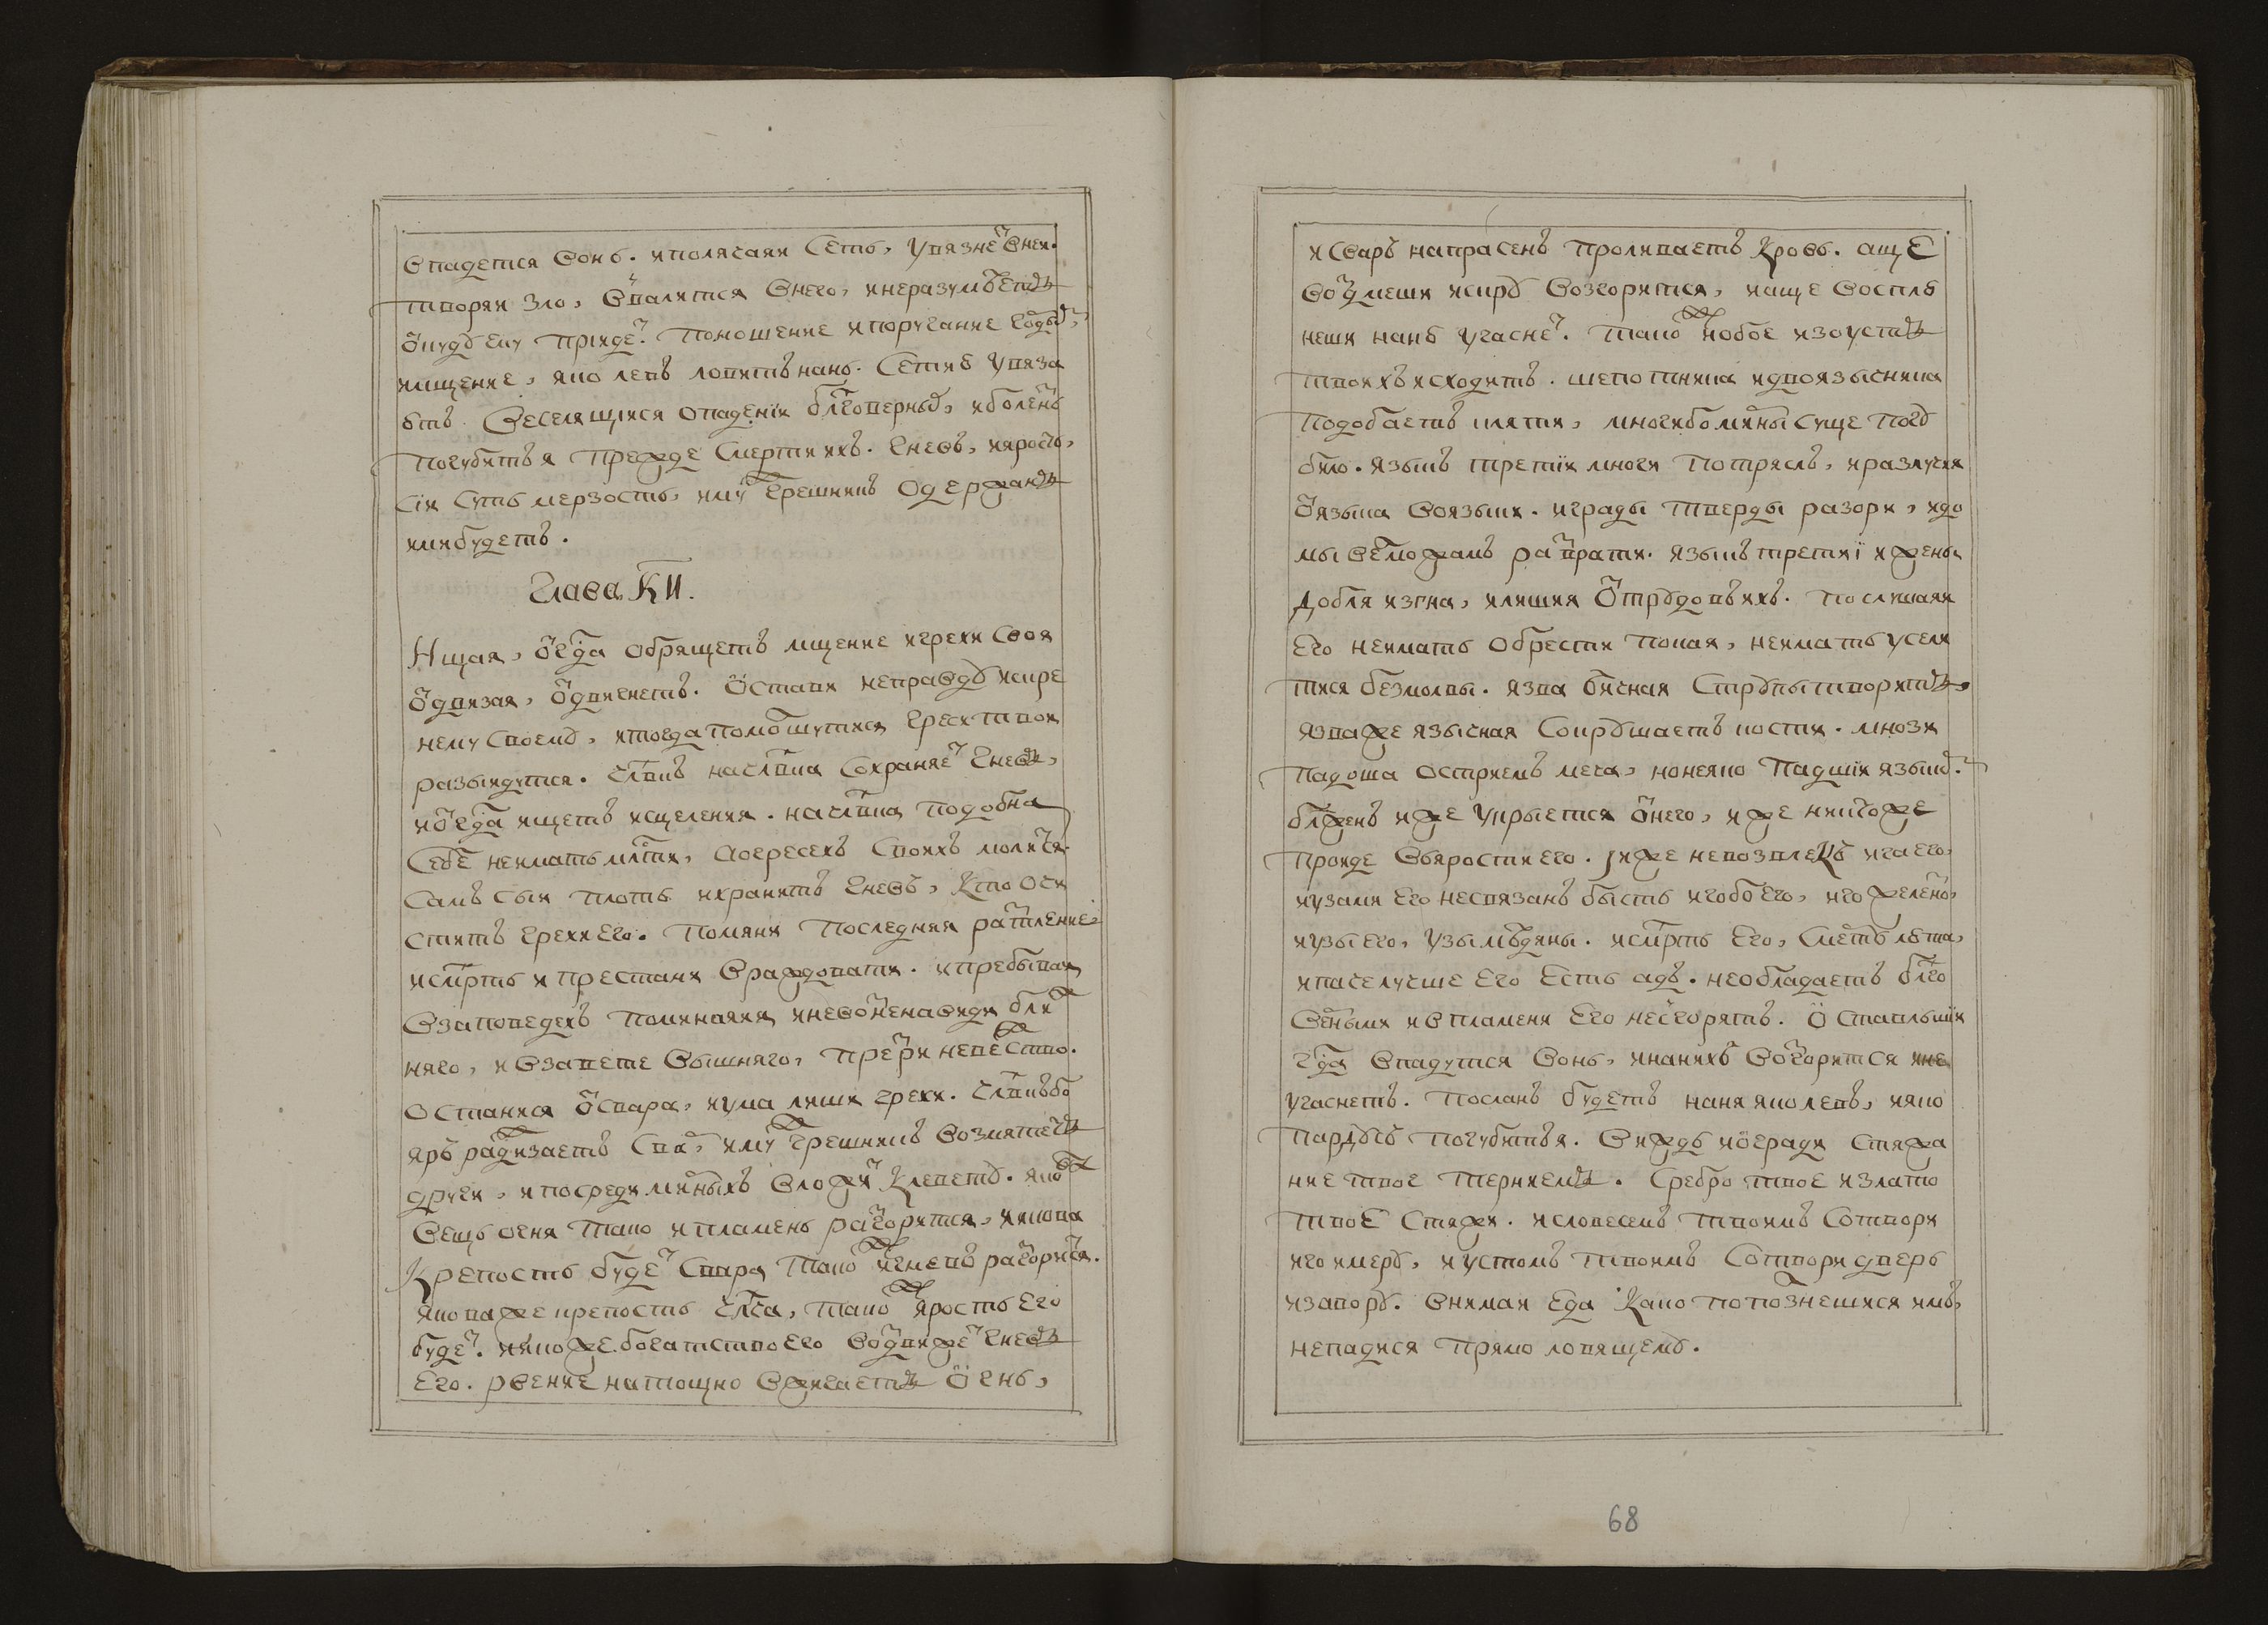 впадется вонь. иполяцаяи Сеть, Увязне͠ Внеи.
творяи зло, Ввалится Внего, инеразумѣетъ
ѿкудꙋ Ему прїиде͠. Поношение ипоругание годы͠,
имщение, яко левъ ловитъ нань. Сетию Увяза
ютъ Веселящиися опадении бл͠говерныхъ, иболень
погубитъ я прежде Смерти ихъ. Гневъ, иярость,
сїи суть мерзость, иму͠ грешникъ Одержанъ
ими будетъ.
Глава К͠И.
Ищаи, ѿг͠да обрящетъ мщение игрехи Своя
ѿдвизая, ѿдвигнетъ. Ѡстави неправдꙋ искре
нему своемꙋ, итогда помо͠лшутися греси твои
разыидутся. чл͠вкъ начл͠вка Сохраняе͠ гневъ,
иѿг͠да ищетъ исцеления. начл͠вка подобна
Себе неимать мл͠сти, аогресехъ своихъ моли͠ся.
Самъ сыи плоть ихранитъ гневъ, Кто очи
ститъ грехи Его. Помяни последняя ра͠тление
исм͠рть ипрестани Враждовати. ипребываи
Взаповедехъ поминаяи инево͠ненавиди бли͠
няго, и Взавете Вышняго, пре͠ри неве͠ство.
останися ѿсвара, иума лиши грехи. чл͠вкъ бо
яръ ра͠дизаетъ Сва͠, иму͠ грешникъ Возмятетъ
други, ипосреди ми͠ныхъ Вложи͠ Клеветꙋ. яко͠
Вещь огня тако ипламень ра͠горится, иякова
Крепость буде͠ Свара тако͠ игневъ ра͠гори͠ся.
якова же крепость чл͠ча, тако͠ ярость Его
буде͠. иякоже богатство Его во͠движе͠ гневъ
Его. рвение натощно Вжигаетъ ѿгнь,
и Сваръ напрасенъ проливаетъ Кровь. аще
во͠дмеши искрꙋ Возгорится, иаще Восплю
неши наню угасне͠. тако͠ иобое изоустъ
твоихъ исходитъ. шепотника идвоязычника
подобаетъ кляти, многи бо ми͠ны суще погꙋ
било. языкъ третїи многи потрясъ, иразлучи
ѿязыка Воязыки. играды тверды разори, идо
мы ве͠лможамъ ра͠врати. языкъ третиї ижены
добля изгна, илиши я ѿтрꙋдовъ ихъ. послушаяи
Его неимать обрести покая, неимать усели
тися безмолвы. язва бичная Стрꙋпы творитъ,
язва же язычная Сокрꙋшаетъ кости. мнози
падоша остриемъ меча, но неяко падшїи языко͠.
бл͠женъ иже укрыется ѿнего, иже ники͠гоже
проиде Въярости его. иже невозвлекъ ига его.
иузами Его несвязанъ бысть иго бо Его, иго желе͠но,
иузы его, узы мѣдяны. исм͠рть Его, Сме͠ть люта,
ипаче лучше Его Есть адъ. необладаетъ бл͠го
ве͠ными ивпламени Его не͠сгорятъ. Ѡставльшїи
г͠да впадутся Вонь, инанихъ Во͠горится ине
угаснетъ. посланъ будетъ наня яко левъ, ияко
пардусъ погубитъ я. Виждь иѿгради стяжа
ние твое тернемъ. Сребро твое излато
твое стяжи. исловесемъ твоимъ Сотвори
иго имерꙋ, иустомъ твоимъ Сотвори дверь
изаворꙋ. Внимаи Еда Како попо͠знешися имъ,
непадися прямо ловящемꙋ.
68